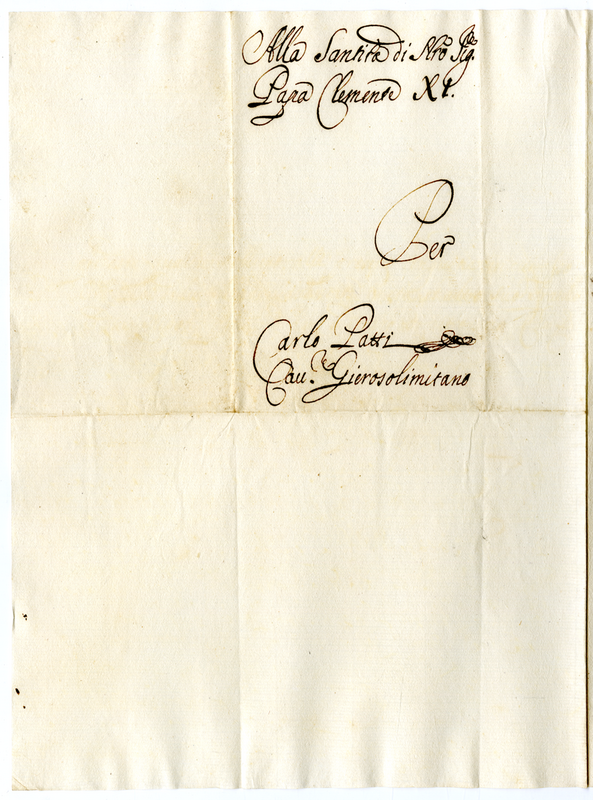 Alla Santità di Nro Sig.re
Papa Clemente XI.
Per
Carlo Patti
Cau.re Gierosolimitano